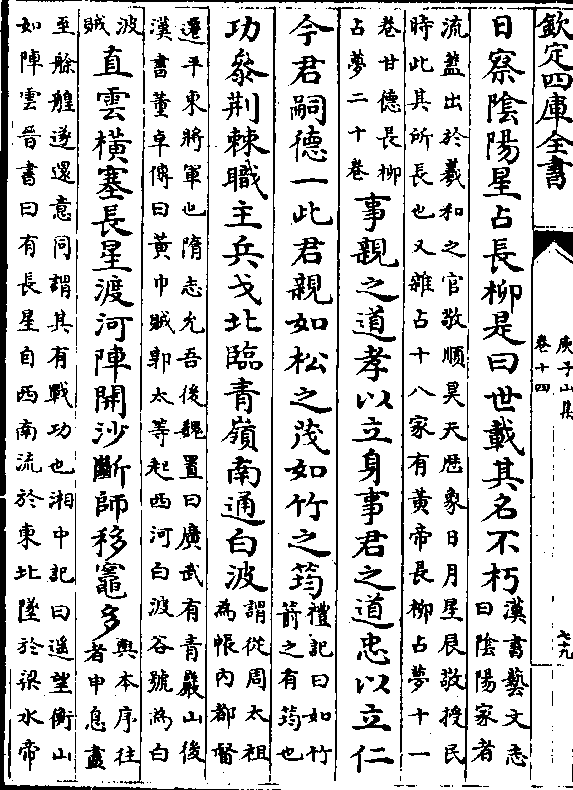 欽定四庫全書
庾子山集
卷十四
七九
日察陰陽星占長柳是曰世載其名不朽
漢書藝文志
曰陰陽家者
流蓋出於羲和之官敬順昊天歴象日月星辰敬授民
時此其所長也又雜占十八家有黄帝長柳占夢十一
卷甘德長柳
占夢二十卷
事親之道孝以立身事君之道忠以立仁
今君嗣德一此君親如松之茂如竹之筠
禮記曰如竹
箭之有筠也
功叅荆棘職主兵戈北臨青嶺南通白波
謂從周太祖
為帳内都督
遷平東將軍也隋志允吾後魏置曰廣武有青巖山後
漢書董卓傳曰黄巾賊郭太等起西河白波谷號為白
波
賊
直雲橫塞長星渡河陣開沙斷師移竈多
輿本序往
者申息盡
至艅艎遂還意同謂其有戰功也湘中記曰遥望衡山
如陣雲晉書曰有長星自西南流於東北墜於梁水帝